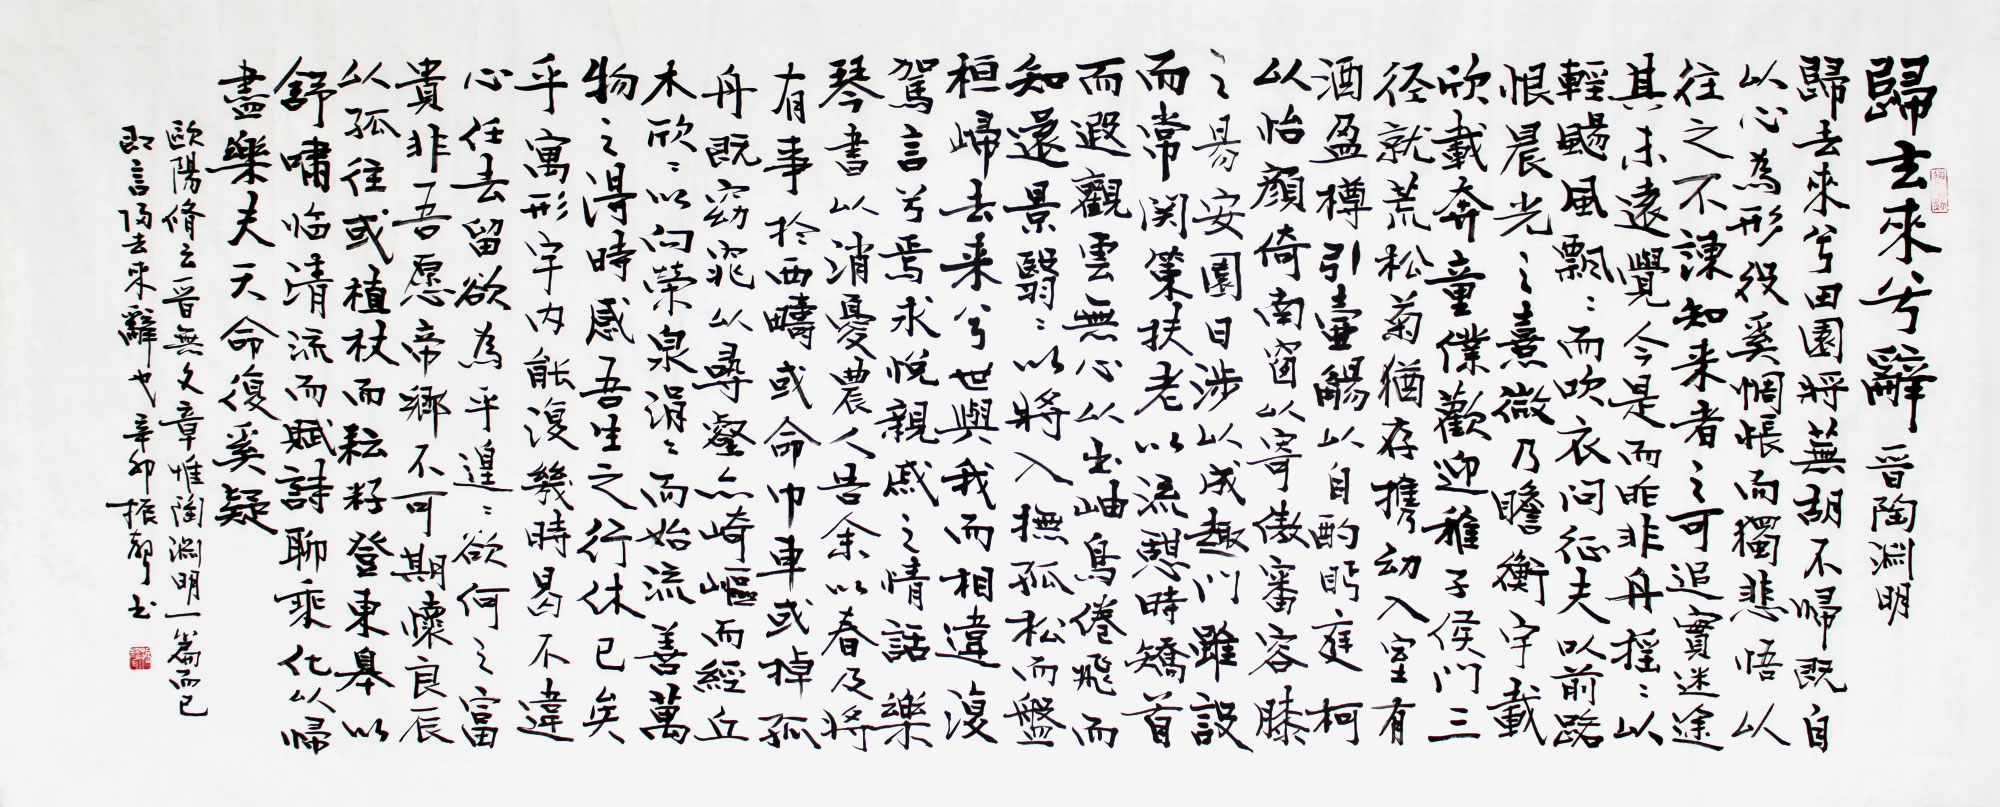 歸去來兮辭 晉陶淵明
歸去來兮田園將蕪胡不歸既自
以心為形役奚惆悵而獨悲悟以
往之不諫知来者之可追實迷途
其未遠覺今是而昨非舟摇〻以
輕颺風飄〻而吹衣问征夫以前路
恨晨光之熹微乃瞻衡宇載
欣載奔童僕歡迎稚子侯门三
径就荒松菊猶存携幼入室有
酒盈樽引壺觴以自酌眄庭柯
以怡顏倚南窗以寄傲審容膝
之易安園日涉以成趣门雖設
而常関策扶老以流憩時矯首
而遐觀雲無心以出岫鳥倦飛而
知還景翳〻以將入撫孤松而盤
桓歸去来兮世與我而相違復
駕言兮焉求悅親戚之情話樂
琴書以消憂農人告余以春及將
有事於西疇或命巾車或棹孤
舟既窈窕以尋壑亦崎嶇而經丘
木欣〻以向荣泉涓〻而始流善萬
物之得時感吾生之行休已矣
乎寓形宇内能復幾時曷不違
心任去留欲為乎遑〻欲何之富
貴非吾愿帝鄉不可期懷良辰
以孤往或植杖而耘耔登東皋以
舒嘯临清流而賦詩聊乘化以歸
盡樂夫天命復奚疑
歐陽脩云晉無文章惟陶淵明一篇而已
即言歸去来辭也辛卯振聲书